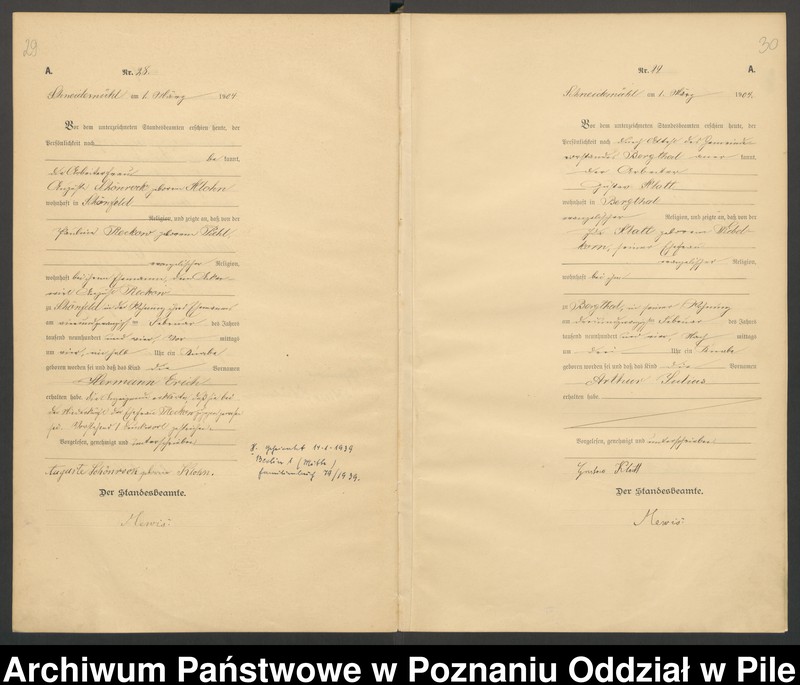 29
A.
Nr. 28.
Schneidemühl am 1. März 1904.
Vor dem unterzeichneten Standesbeamten erschien heute, der
Persönlichkeit nach
be kannt,
die Arbeiterfrau
Auguste Schönrock geborene Klohn
wohnhaft in Schönfeld
Religion, und zeigte an, daß von der
geborene
evangelischer Religion,
wohnhaft bei ihrem Ehemann, dem
August
zu Schönfeld in der Wohnung ihres Ehemanns
am Februar des Jahres
tausend neunhundert und vier Vor mittags
um Uhr ein Knabe
geboren worden sei und daß das Kind die Vornamen
Hermann Erich
erhalten habe. Die erklärte, daß sie bei
der Niederkunft der Ehefrau zugegen gewesen
sei.
Vorgelesen, genehmigt und unterschrieben
Auguste Schönrock geborene Klohn.
Der Standesbeamte.
Mewis.
geheiratet 14.1.1939
Berlin
Familienbuch 74/1939.
30
Nr. 19
A.
Schneidemühl am 1. März 1904.
Vor dem unterzeichneten Standesbeamten erschien heute, der
Persönlichkeit nach durch Attest des Gemeinde
vorstandes Bergthal aner kannt,
der Arbeiter
Gustav Klatt
wohnhaft in Bergthal
evangelischer Religion, und zeigte an, daß von der
Klatt geborenen
seiner Ehefrau
evangelischer Religion,
wohnhaft bei ihm
zu Bergthal, in seiner Wohnung
am Februar des Jahres
tausend neunhundert und vier, Nach mittags
um drei Uhr ein Knabe
geboren worden sei und daß das Kind die Vornamen
Arthur Julius
erhalten habe.
Vorgelesen, genehmigt und unterschrieben
Gustav Klatt
Der Standesbeamte.
Mewis.
Archiwum Państwowe w Poznaniu Oddział w Pile